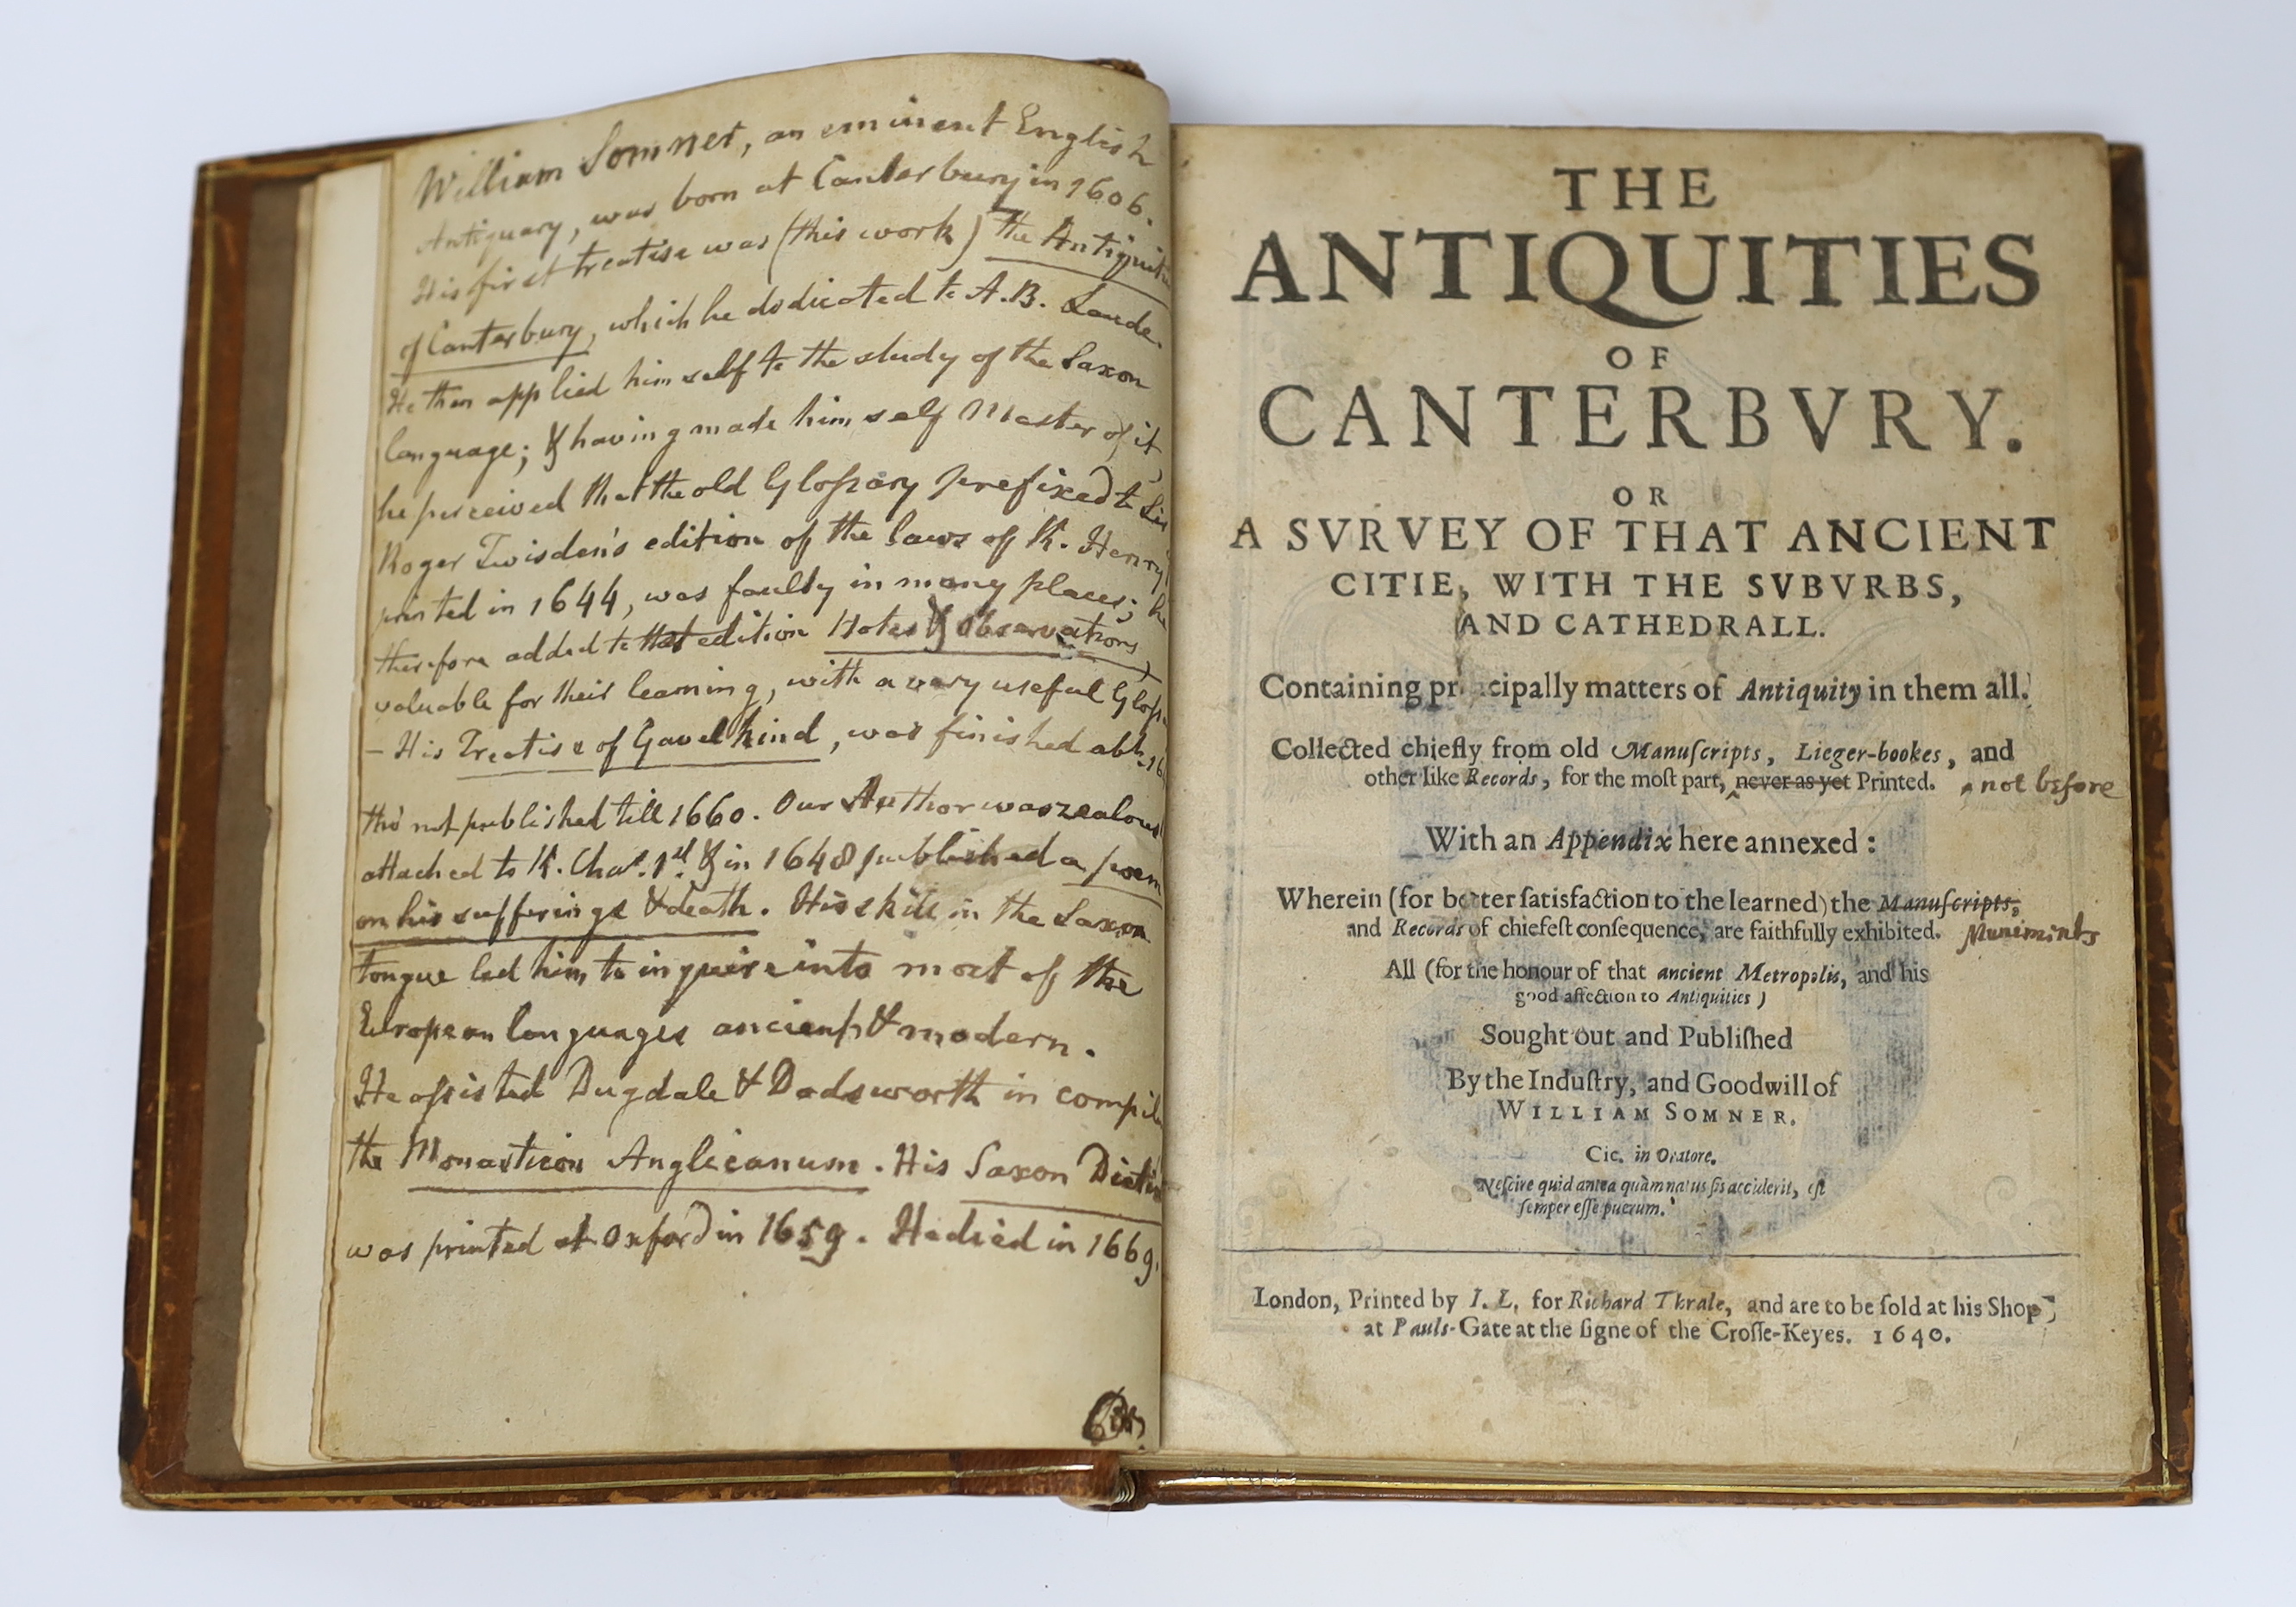 William Somner, an eminent English
Antiquary, was born at Canterbury in 1606.
His first treatise was (this work) the Antiquit
of Canterbury, which he dedicated to A.B. Laude.
He then applied himself to the study of the Saxon
language; & having made himself Master of it,
he perceived that the old Gloſsary prefixed to Sir
Roger Twisden's edition of the laws of K. Henry
printed in 1644, was faulty in many places; he
therefore added to that edition Notes & Observations,
valuable for their learning, with a very useful Gloſs
— His Treatise of Gavelkind, was finished abt. 16
tho' not published till 1660. Our Author was zealous
attached to K. Chas. 1st. & in 1648 published a poem
on his sufferings & death. His skill in the Saxon
tongue led him to inquire into most of the
European languages ancient & modern.
He aſsisted Dugdale & Dodsworth in compil
the Monasticon Anglicanum. His Saxon Dicti
was printed at Oxford in 1659. He died in 1669.
THE
ANTIQUITIES
OF
CANTERBVRY.
OR
A SVRVEY OF THAT ANCIENT
CITIE, WITH THE SVBVRBS,
AND CATHEDRALL.
Containing principally matters of Antiquity in them all.
Collected chiefly from old Manuſcripts, Lieger-bookes, and
other like Records, for the moſt part, never as yet Printed. ‸ not before
With an Appendix here annexed:
Wherein (for better ſatisfaction to the learned) the Manuſcripts,
and Records of chiefeſt conſequence, are faithfully exhibited. Muniments
All (for the honour of that ancient Metropolis, and his
good affection to Antiquities)
Sought out and Publiſhed
By the Induſtry, and Goodwill of
WILLIAM SOMNER.
Cic. in Oratore.
Neſcire quid antea quàm natus ſis acciderit, eſt
ſemper eſſe puerum.
London, Printed by I. L. for Richard Thrale, and are to be ſold at his Shop,
at Pauls-Gate at the ſigne of the Croſſe-Keyes. 1640.